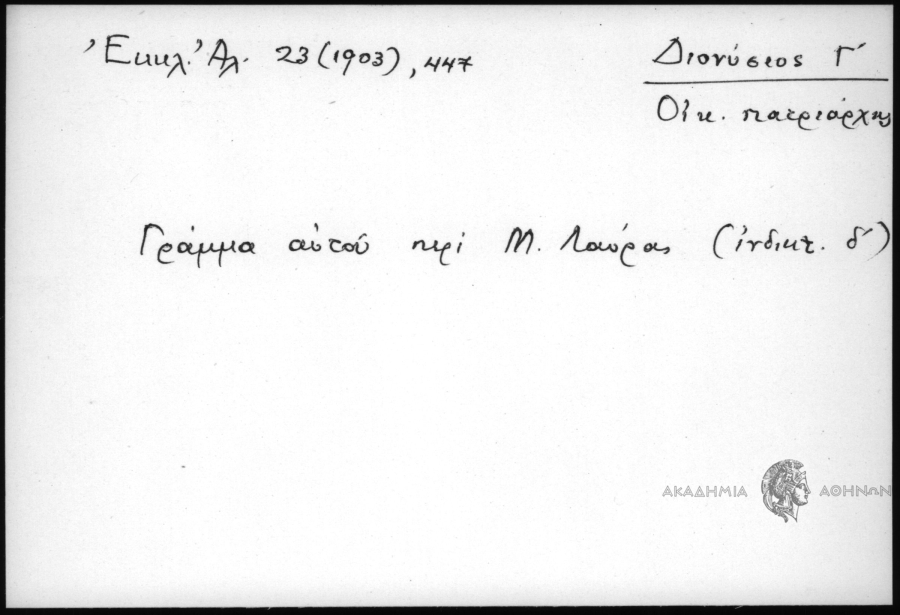 Ἐκκλ. Ἀλ. 23 (1903), 447
Διονύσιος Γ΄
Οἰκ. πατριάρχης
Γράμμα αὐτοῦ περί Μ. Λαύρας (ἰνδικτ. δ΄)
ΑΚΑΔΗΜΙΑ ΑΘΗΝΩΝ